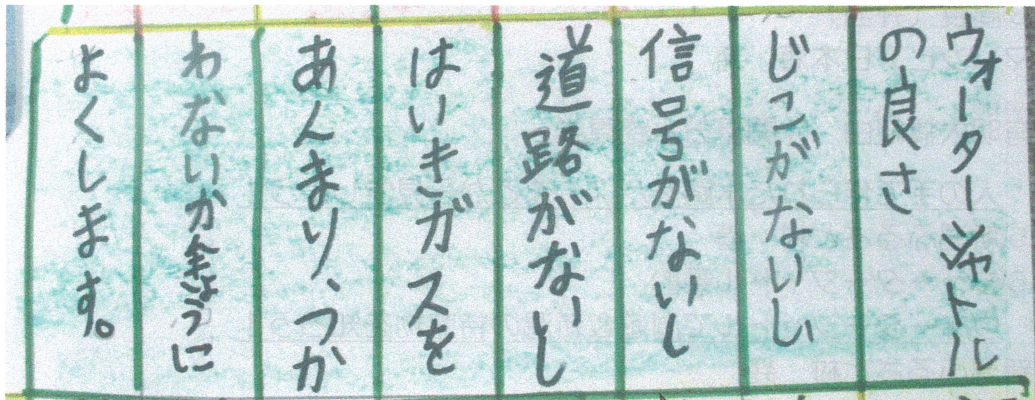 ウォーターシャトル
の良さ
じこがないし
信号がないし
道路がないし
はいきガスを
あんまり、つか
わないかんきょうに
よくします。